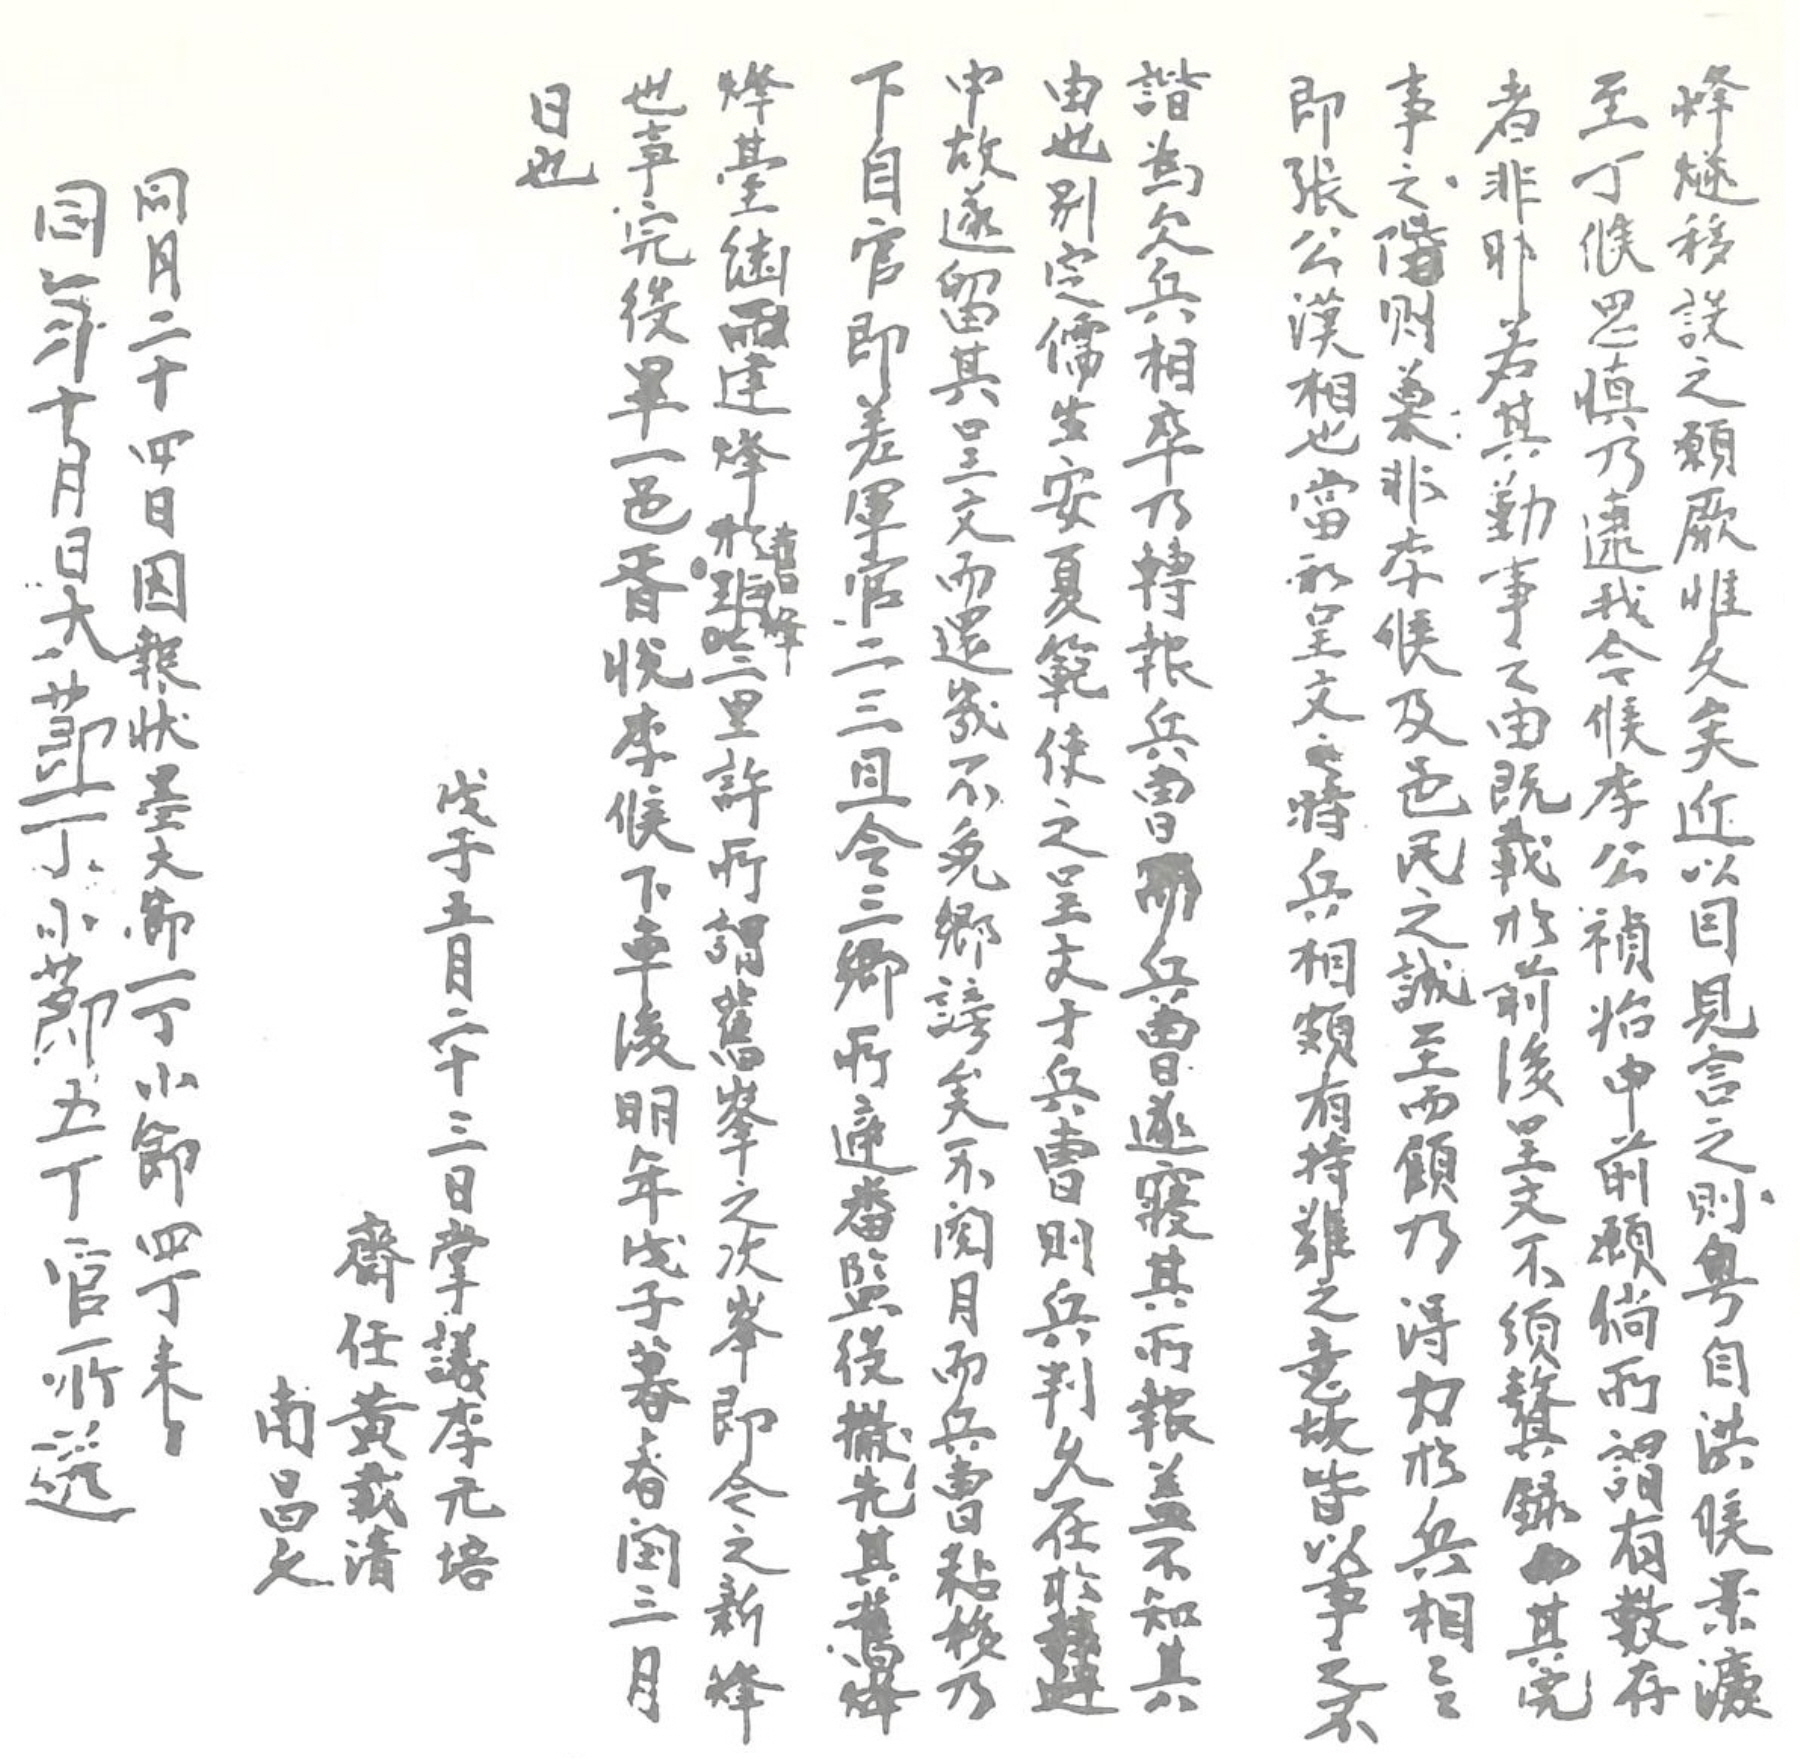 烽燧移設之願厥惟久矣近以目見言之則粤自洪候景濂
至丁候思慎乃逮我今候李公禎怡申前願倘所謂有數存
者非耶若其勤事之由既載於前後呈文不須贅錄其完
事之階則莫非李候及邑民之誠至而顧乃得力於兵相云
即張公漢相也當初呈文之時兵相頗有持難之意故皆以事之不
諧為久兵相卒乃轉報兵曹兵曹遂寢其所報盖不知其
由也別定儒生安夏範使之呈文于兵曹則兵判久在
中故遂留其呈文而還幾不免鄉謗矣不閱月而兵曹粘移乃
下自官即差軍官二三且令三鄉所遞番監役撤先其舊烽
烽臺繼而建烽於距舊烽三里許所謂舊峯之次峯即今之新烽
也幸完役畢一邑胥悅李候下車後明年戊子暮春閏三月
日也
戊子五月二十三日掌議李元培
齋任黃載清
南昌久
同月二十四日因報狀墨大節一丁小節四丁来
同年十月日大節一丁小節五丁官所送